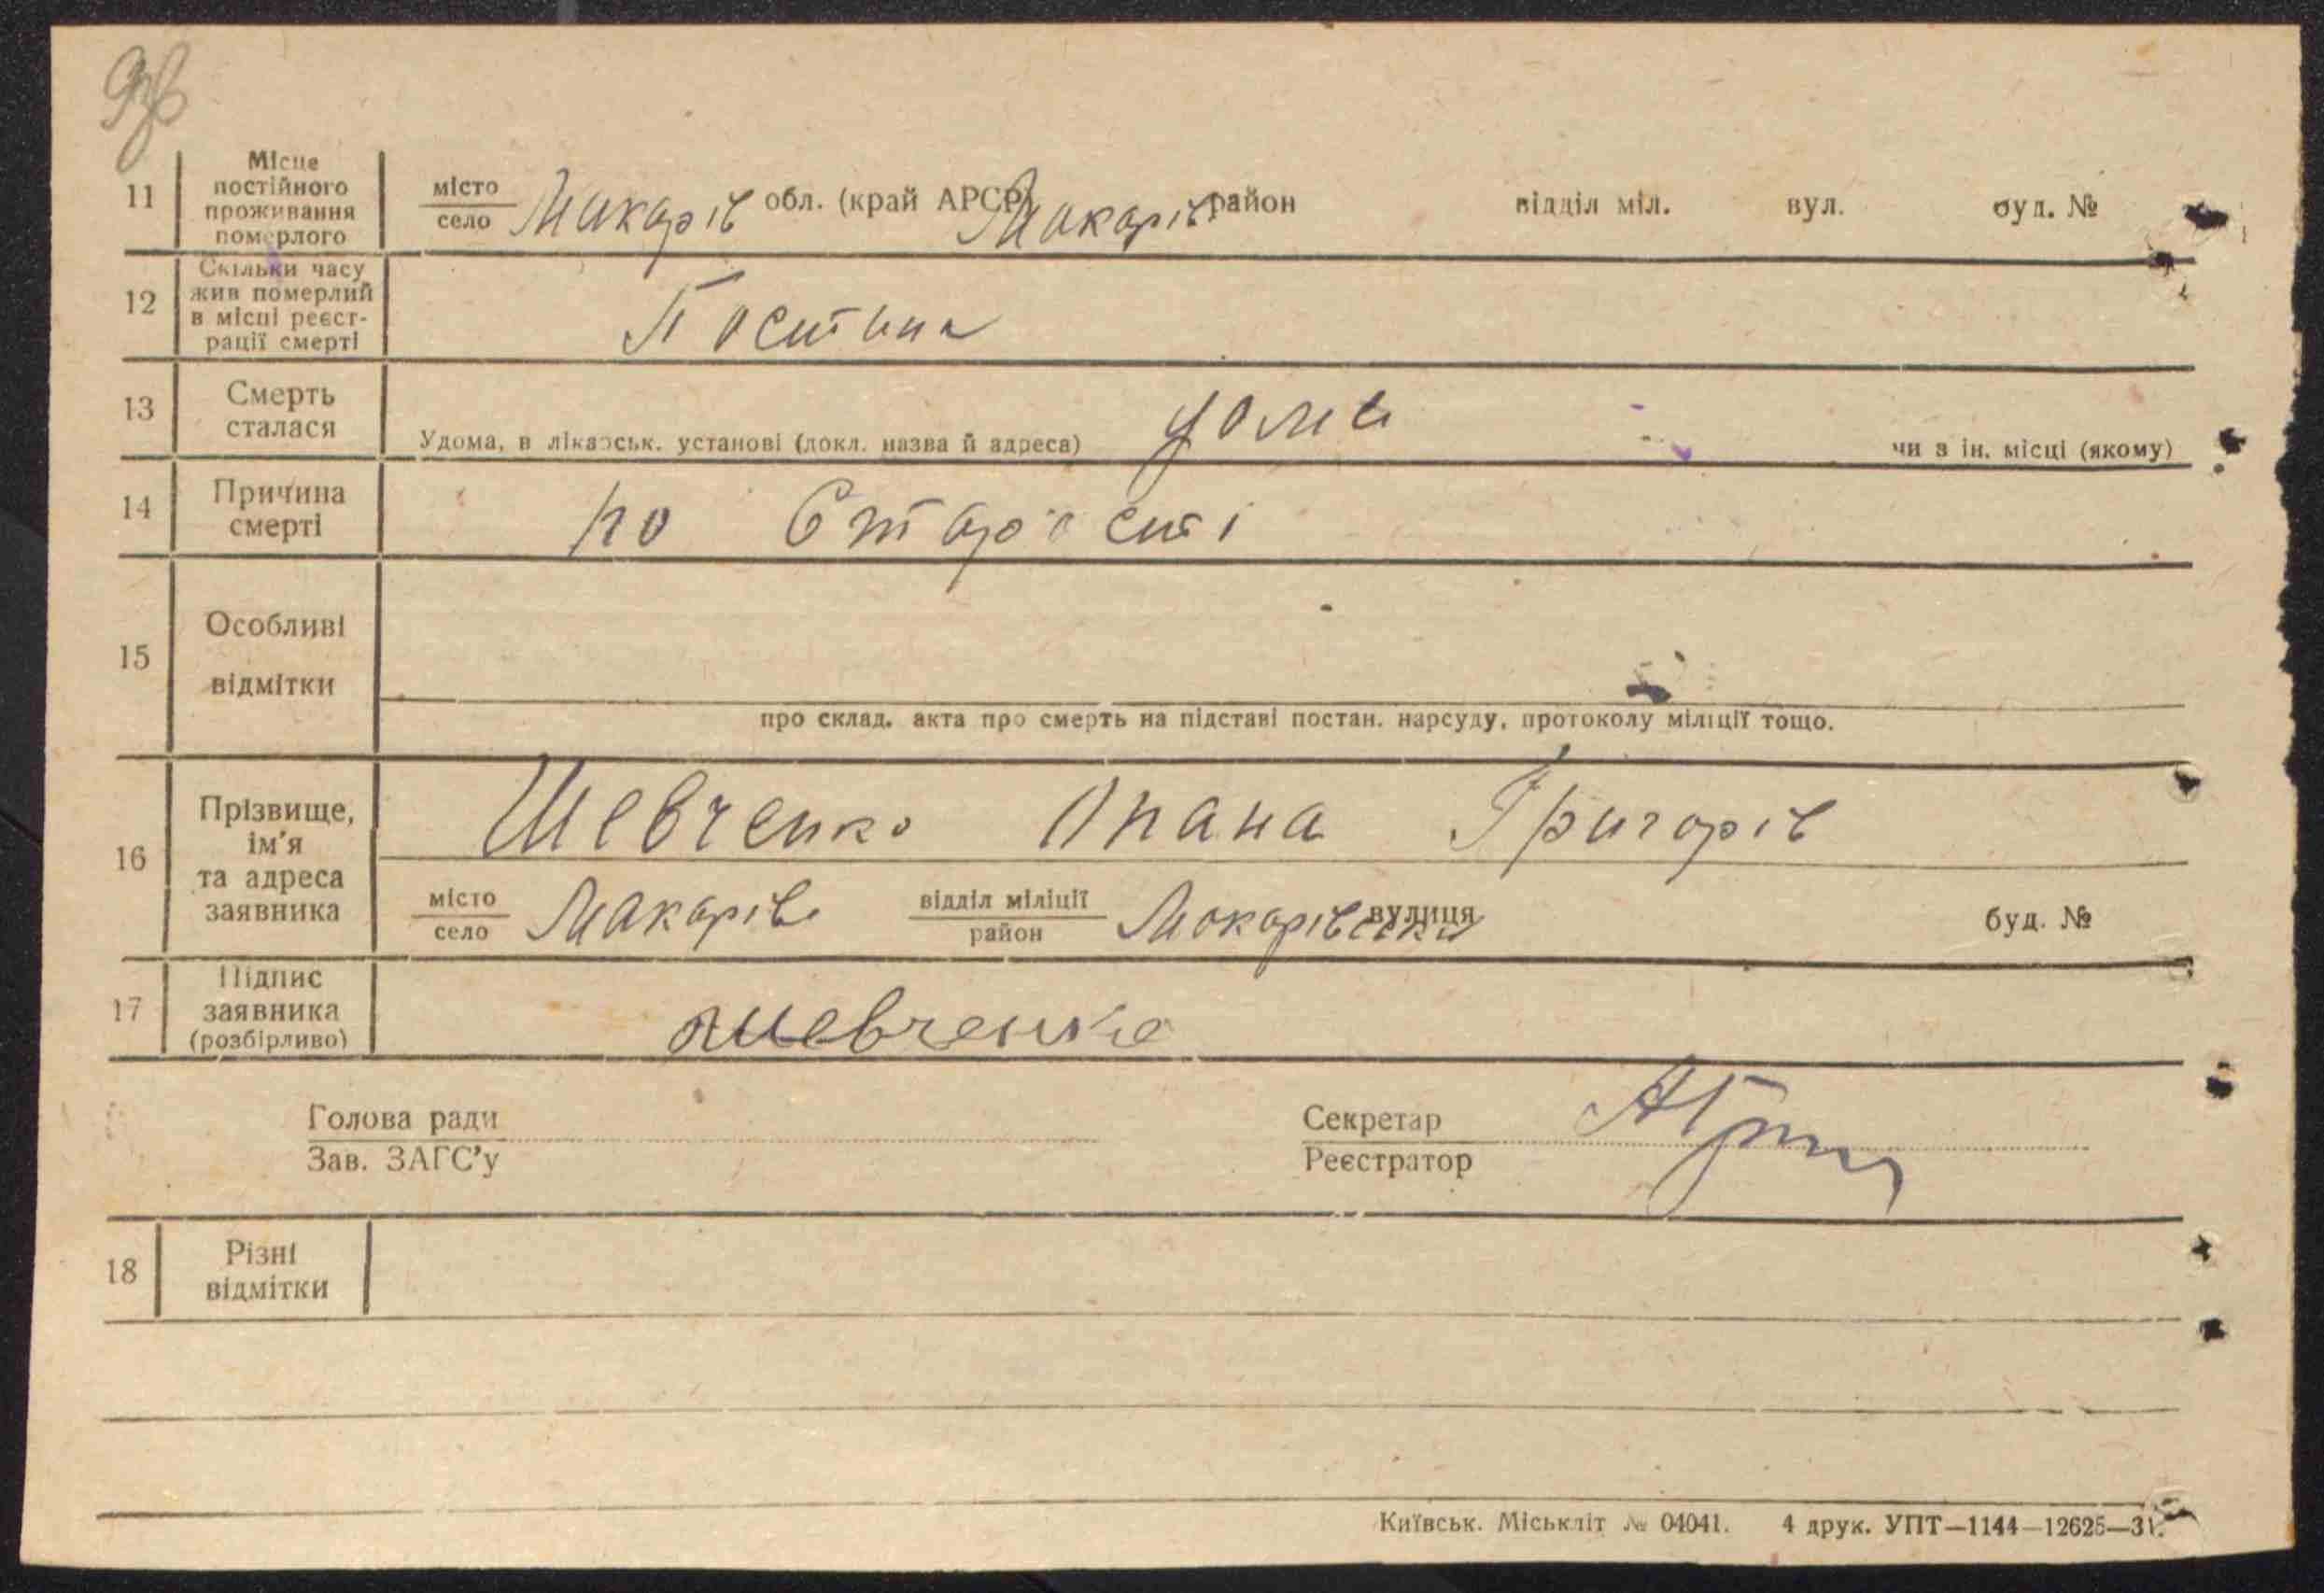 11
Місце
постійного
проживання
померлого
місто
село
Макарів обл. (край АРСР) Макарів район відділ міл. вул. буд. №
12
Скільки часу
жив померлий
в місці реєст-
рації смерті
Постина
13
Смерть
сталася
Удома, в лікарськ. установі (докл. назва й адреса) дома чи в ін. місці (якому)
14
Причина
смерті
по Старості
15
Особливі
відмітки
про склад. акта про смерть на підставі постан. нарсуду, протоколу міліції тощо.
16
Прізвище,
ім'я
та адреса
заявника
Шевченко Опана Григорів
місто
село
Макарів
відділ міліції
район
Макарівськи вулиця буд. №
17
Підпис
заявника
(розбірливо)
Шевченко
Голова ради
Зав. ЗАГС'у
Секретар
Реєстратор
18
Різні
відмітки
Київськ. Міськліт № 04041. 4 друк. УПТ—1144—12625—31.